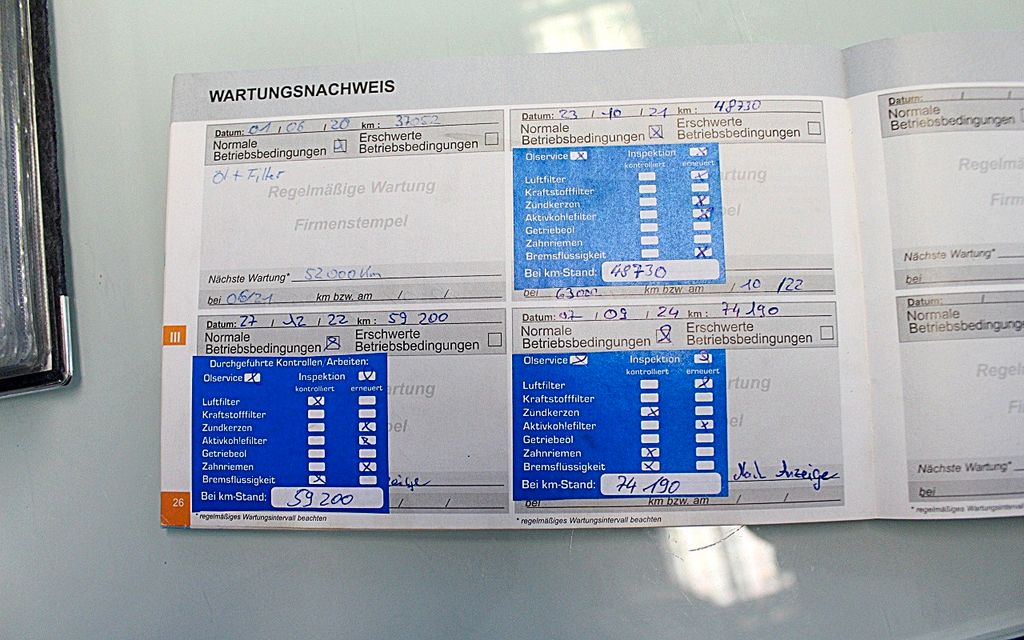 WARTUNGSNACHWEIS
Datum: 01 / 06 / 20 km: 37052
Normale Betriebsbedingungen ☒ Erschwerte Betriebsbedingungen ☐
Öl + Filter
Regelmäßige Wartung
Firmenstempel
Nächste Wartung* 52000 km
bei 06/21 km bzw. am / /
Datum: 23 / 10 / 21 km: 48730
Normale Betriebsbedingungen ☒ Erschwerte Betriebsbedingungen ☐
Ölservice X Inspektion X
kontrolliert erneuert
Luftfilter
Kraftstofffilter
Zündkerzen
Aktivkohlefilter
Getriebeol
Zahnriemen
Bremsflüssigkeit
Bei km-Stand: 48730
bei 63000 km bzw. am / 10 /22
III
Datum: 27 / 12 / 22 km: 59 200
Normale Betriebsbedingungen ☒ Erschwerte Betriebsbedingungen ☐
Durchgeführte Kontrollen/Arbeiten:
Ölservice X Inspektion
kontrolliert erneuert
Luftfilter
Kraftstofffilter
Zundkerzen
Aktivkohlefilter
Getriebeol
Zahnriemen
Bremsflüssigkeit
Bei km-Stand: 59 200
* regelmäßiges Wartungsintervall beachten
26
Datum: 07 / 09 / 24 km: 74 190
Normale Betriebsbedingungen ☒ Erschwerte Betriebsbedingungen ☐
Ölservice Inspektion
kontrolliert erneuert
Luftfilter
Kraftstofffilter
Zündkerzen
Aktivkohlefilter
Getriebeol
Zahnriemen
Bremsflüssigkeit
Bei km-Stand: 74 190
Anzeige
bei km bzw. am / /
* regelmäßiges Wartungsintervall beachten
Datum: / /
Normale
Betriebsbedingungen
Nächste Wartung*
bei
Datum: / /
Normale
Betriebsbedingungen
Nächste Wartung*
bei